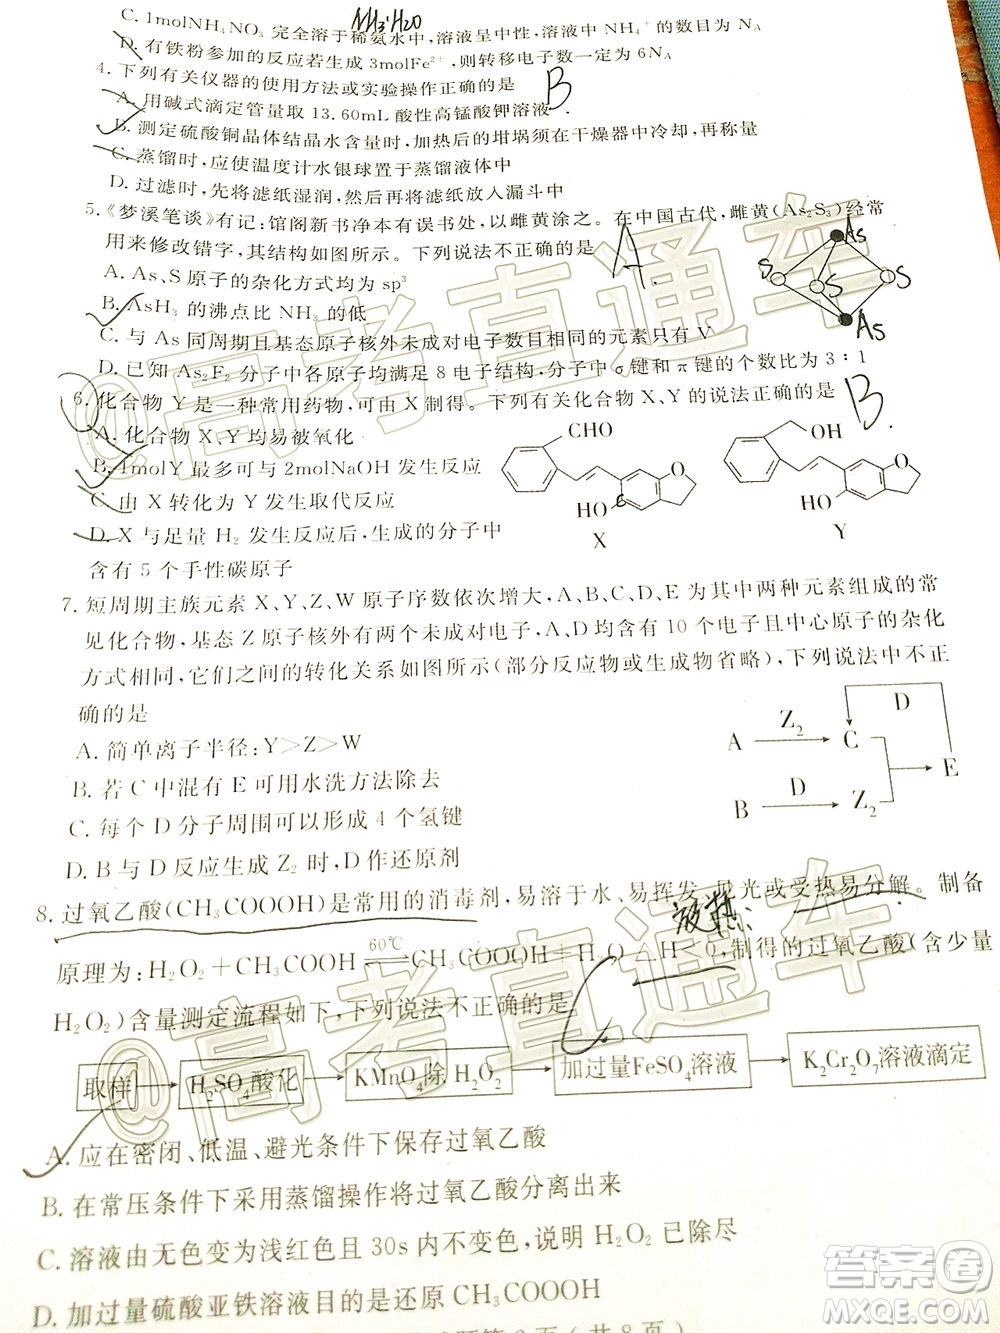 NH₃·H₂O
C. 1molNH₄NO₃ 完全溶于稀氨水中，溶液呈中性，溶液中 NH₄⁺ 的数目为 N_A
D. 有铁粉参加的反应若生成 3molFe²⁺，则转移电子数一定为 6N_A
4. 下列有关仪器的使用方法或实验操作正确的是 B
A. 用碱式滴定管量取 13.60mL 酸性高锰酸钾溶液
B. 测定硫酸铜晶体结晶水含量时，加热后的坩埚须在干燥器中冷却，再称量
C. 蒸馏时，应使温度计水银球置于蒸馏液体中
D. 过滤时，先将滤纸湿润，然后再将滤纸放入漏斗中
5.《梦溪笔谈》有记：馆阁新书净本有误书处，以雌黄涂之。在中国古代，雌黄(As₂S₃)经常
用来修改错字，其结构如图所示。下列说法不正确的是 A
A. As、S 原子的杂化方式均为 sp³
B. AsH₃ 的沸点比 NH₃ 的低
C. 与 As 同周期且基态原子核外未成对电子数目相同的元素只有 V
D. 已知 As₂F₂ 分子中各原子均满足 8 电子结构，分子中 σ 键和 π 键的个数比为 3∶1
As
S S S
As
6. 化合物 Y 是一种常用药物，可由 X 制得。下列有关化合物 X、Y 的说法正确的是 B
A. 化合物 X、Y 均易被氧化
B. 1molY 最多可与 2molNaOH 发生反应
C. 由 X 转化为 Y 发生取代反应
D. X 与足量 H₂ 发生反应后，生成的分子中
含有 5 个手性碳原子
CHO
O
HO
X
OH
O
HO
Y
7. 短周期主族元素 X、Y、Z、W 原子序数依次增大，B、C、D、E 为其中两种元素组成的常
见化合物，基态 Z 原子核外有两个未成对电子，A、D 均含有 10 个电子且中心原子的杂化
方式相同，它们之间的转化关系如图所示(部分反应物或生成物省略)，下列说法中不正
确的是
A. 简单离子半径：Y>Z>W
B. 若 C 中混有 E 可用水洗方法除去
C. 每个 D 分子周围可以形成 4 个氢键
D. B 与 D 反应生成 Z₂ 时，D 作还原剂
D
A Z₂ C
E
B D Z₂
8. 过氧乙酸(CH₃COOOH)是常用的消毒剂，易溶于水、易挥发、见光或受热易分解。制备
放热
原理为：H₂O₂+CH₃COOH 60℃ ⇌ CH₃COOOH+H₂O △H<0，制得的过氧乙酸(含少量
H₂O₂)含量测定流程如下，下列说法不正确的是
取样 → H₂SO₄酸化 → KMnO₄除 H₂O₂ → 加过量FeSO₄溶液 → K₂Cr₂O₇溶液滴定
A. 应在密闭、低温、避光条件下保存过氧乙酸
B. 在常压条件下采用蒸馏操作将过氧乙酸分离出来
C. 溶液由无色变为浅红色且 30s 内不变色，说明 H₂O₂ 已除尽
D. 加过量硫酸亚铁溶液目的是还原 CH₃COOOH
2 页(共 8 页)
@高考直通车
@高考直通车
答案圈
MXQE.COM